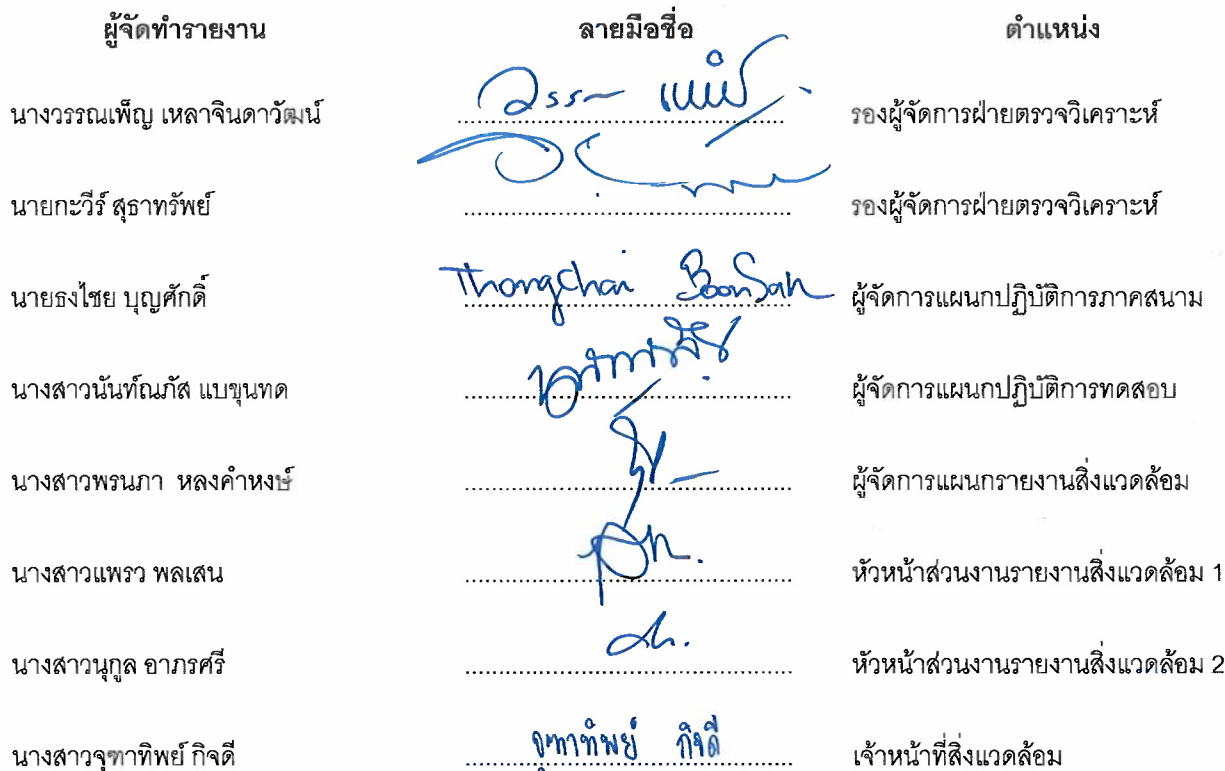 ผู้จัดทำรายงาน ลายมือชื่อ ตำแหน่ง
นางวรรณเพ็ญ เหลาจินดาวัฒน์ รองผู้จัดการฝ่ายตรวจวิเคราะห์
นายกะวีร์ สุธาทรัพย์ รองผู้จัดการฝ่ายตรวจวิเคราะห์
นายธงไชย บุญศักดิ์ Thongchai BoonSak ผู้จัดการแผนกปฏิบัติการภาคสนาม
นางสาวนันท์ณภัส แบขุนทด ผู้จัดการแผนกปฏิบัติการทดสอบ
นางสาวพรนภา หลงคำหงษ์ ผู้จัดการแผนกรายงานสิ่งแวดล้อม
นางสาวแพรว พลเสน หัวหน้าส่วนงานรายงานสิ่งแวดล้อม 1
นางสาวนุกูล อาภรศรี หัวหน้าส่วนงานรายงานสิ่งแวดล้อม 2
นางสาวจุฑาทิพย์ กิจดี จุฑาทิพย์ กิจดี เจ้าหน้าที่สิ่งแวดล้อม